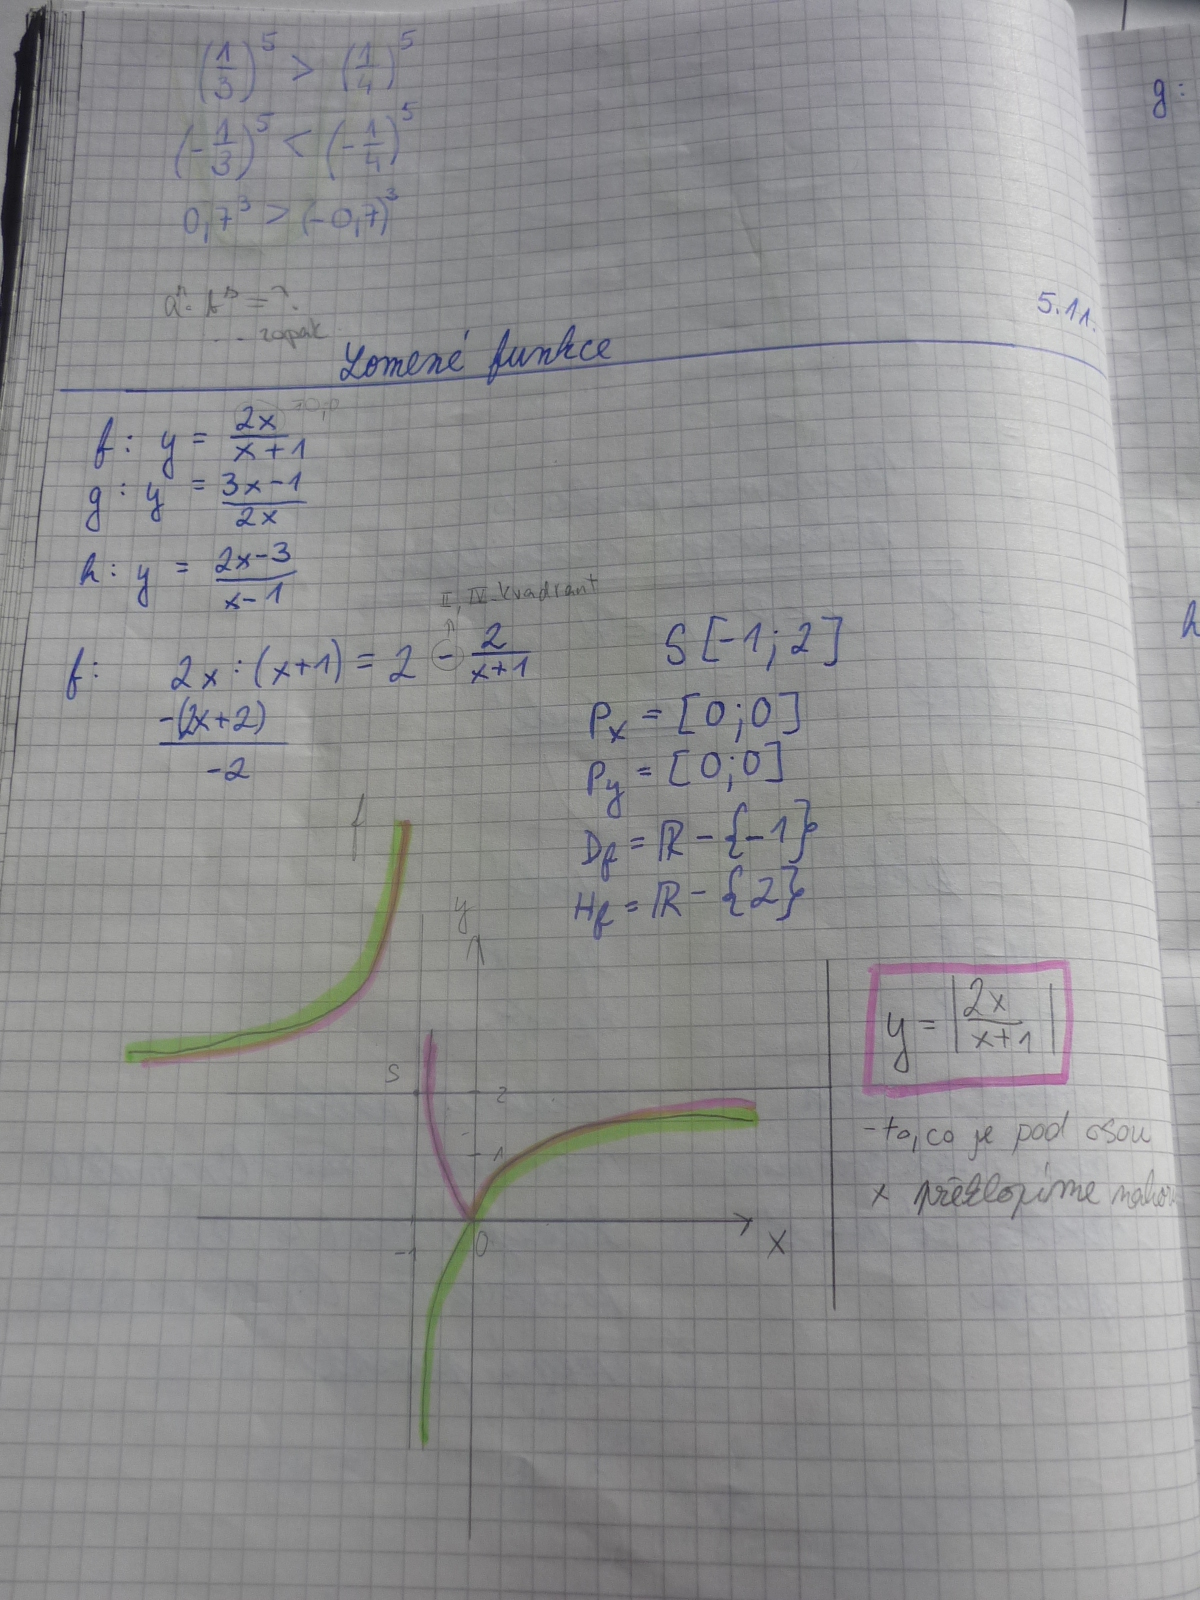 (1/3)^5 > (1/4)^5
(-1/3)^5 < (-1/4)^5
0,7^3 > (-0,7)^3
= ?
... zopak
5.11.
Lomené funkce
f: y = 2x/(x+1)
g: y = (3x-1)/(2x)
h: y = (2x-3)/(x-1)
II, IV kvadrant
f: 2x : (x+1) = 2 - 2/(x+1)
-(2x+2)
-2
S[-1; 2]
Px = [0;0]
Py = [0;0]
Df = ℝ - {-1}
Hf = ℝ - {2}
f
y
S
2
1
-1
0
x
y = |2x/(x+1)|
- to, co je pod osou
x překlopíme
g:
h